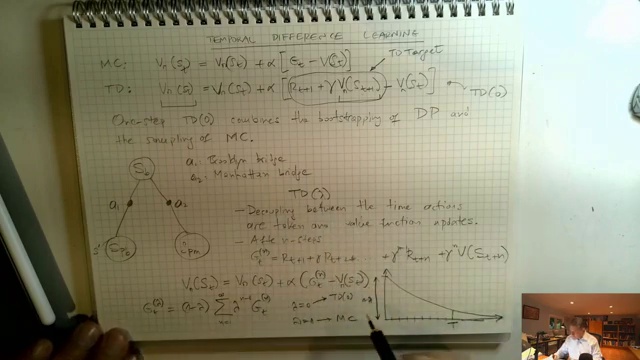 TEMPORAL DIFFERENCE LEARNING
MC: Vπ(St) = Vπ(St) + α [Gt − V(St)]
TD Target
TD: Vπ(St) = Vπ(St) + α [Rt+1 + γ Vπ(St+1) − Vπ(St)]
TD(0)
One-step TD(0) combines the bootstrapping of DP and
the sampling of MC.
a1: Brooklyn bridge
a2: Manhattan bridge
Sb
a1
a2
2pm
TD(λ)
– Decoupling between the time actions
are taken and value function updates.
– After n-steps
Gt(n) = Rt+1 + γ Rt+2 + γ^n V(St+n)
Vπ(St) = Vπ(St) + α (Gt(n) − Vπ(St))
Gt(λ) = (1−λ) Σ n=1 λ^n-1 Gt(n)
λ=0 → TD(0)
→ MC
T